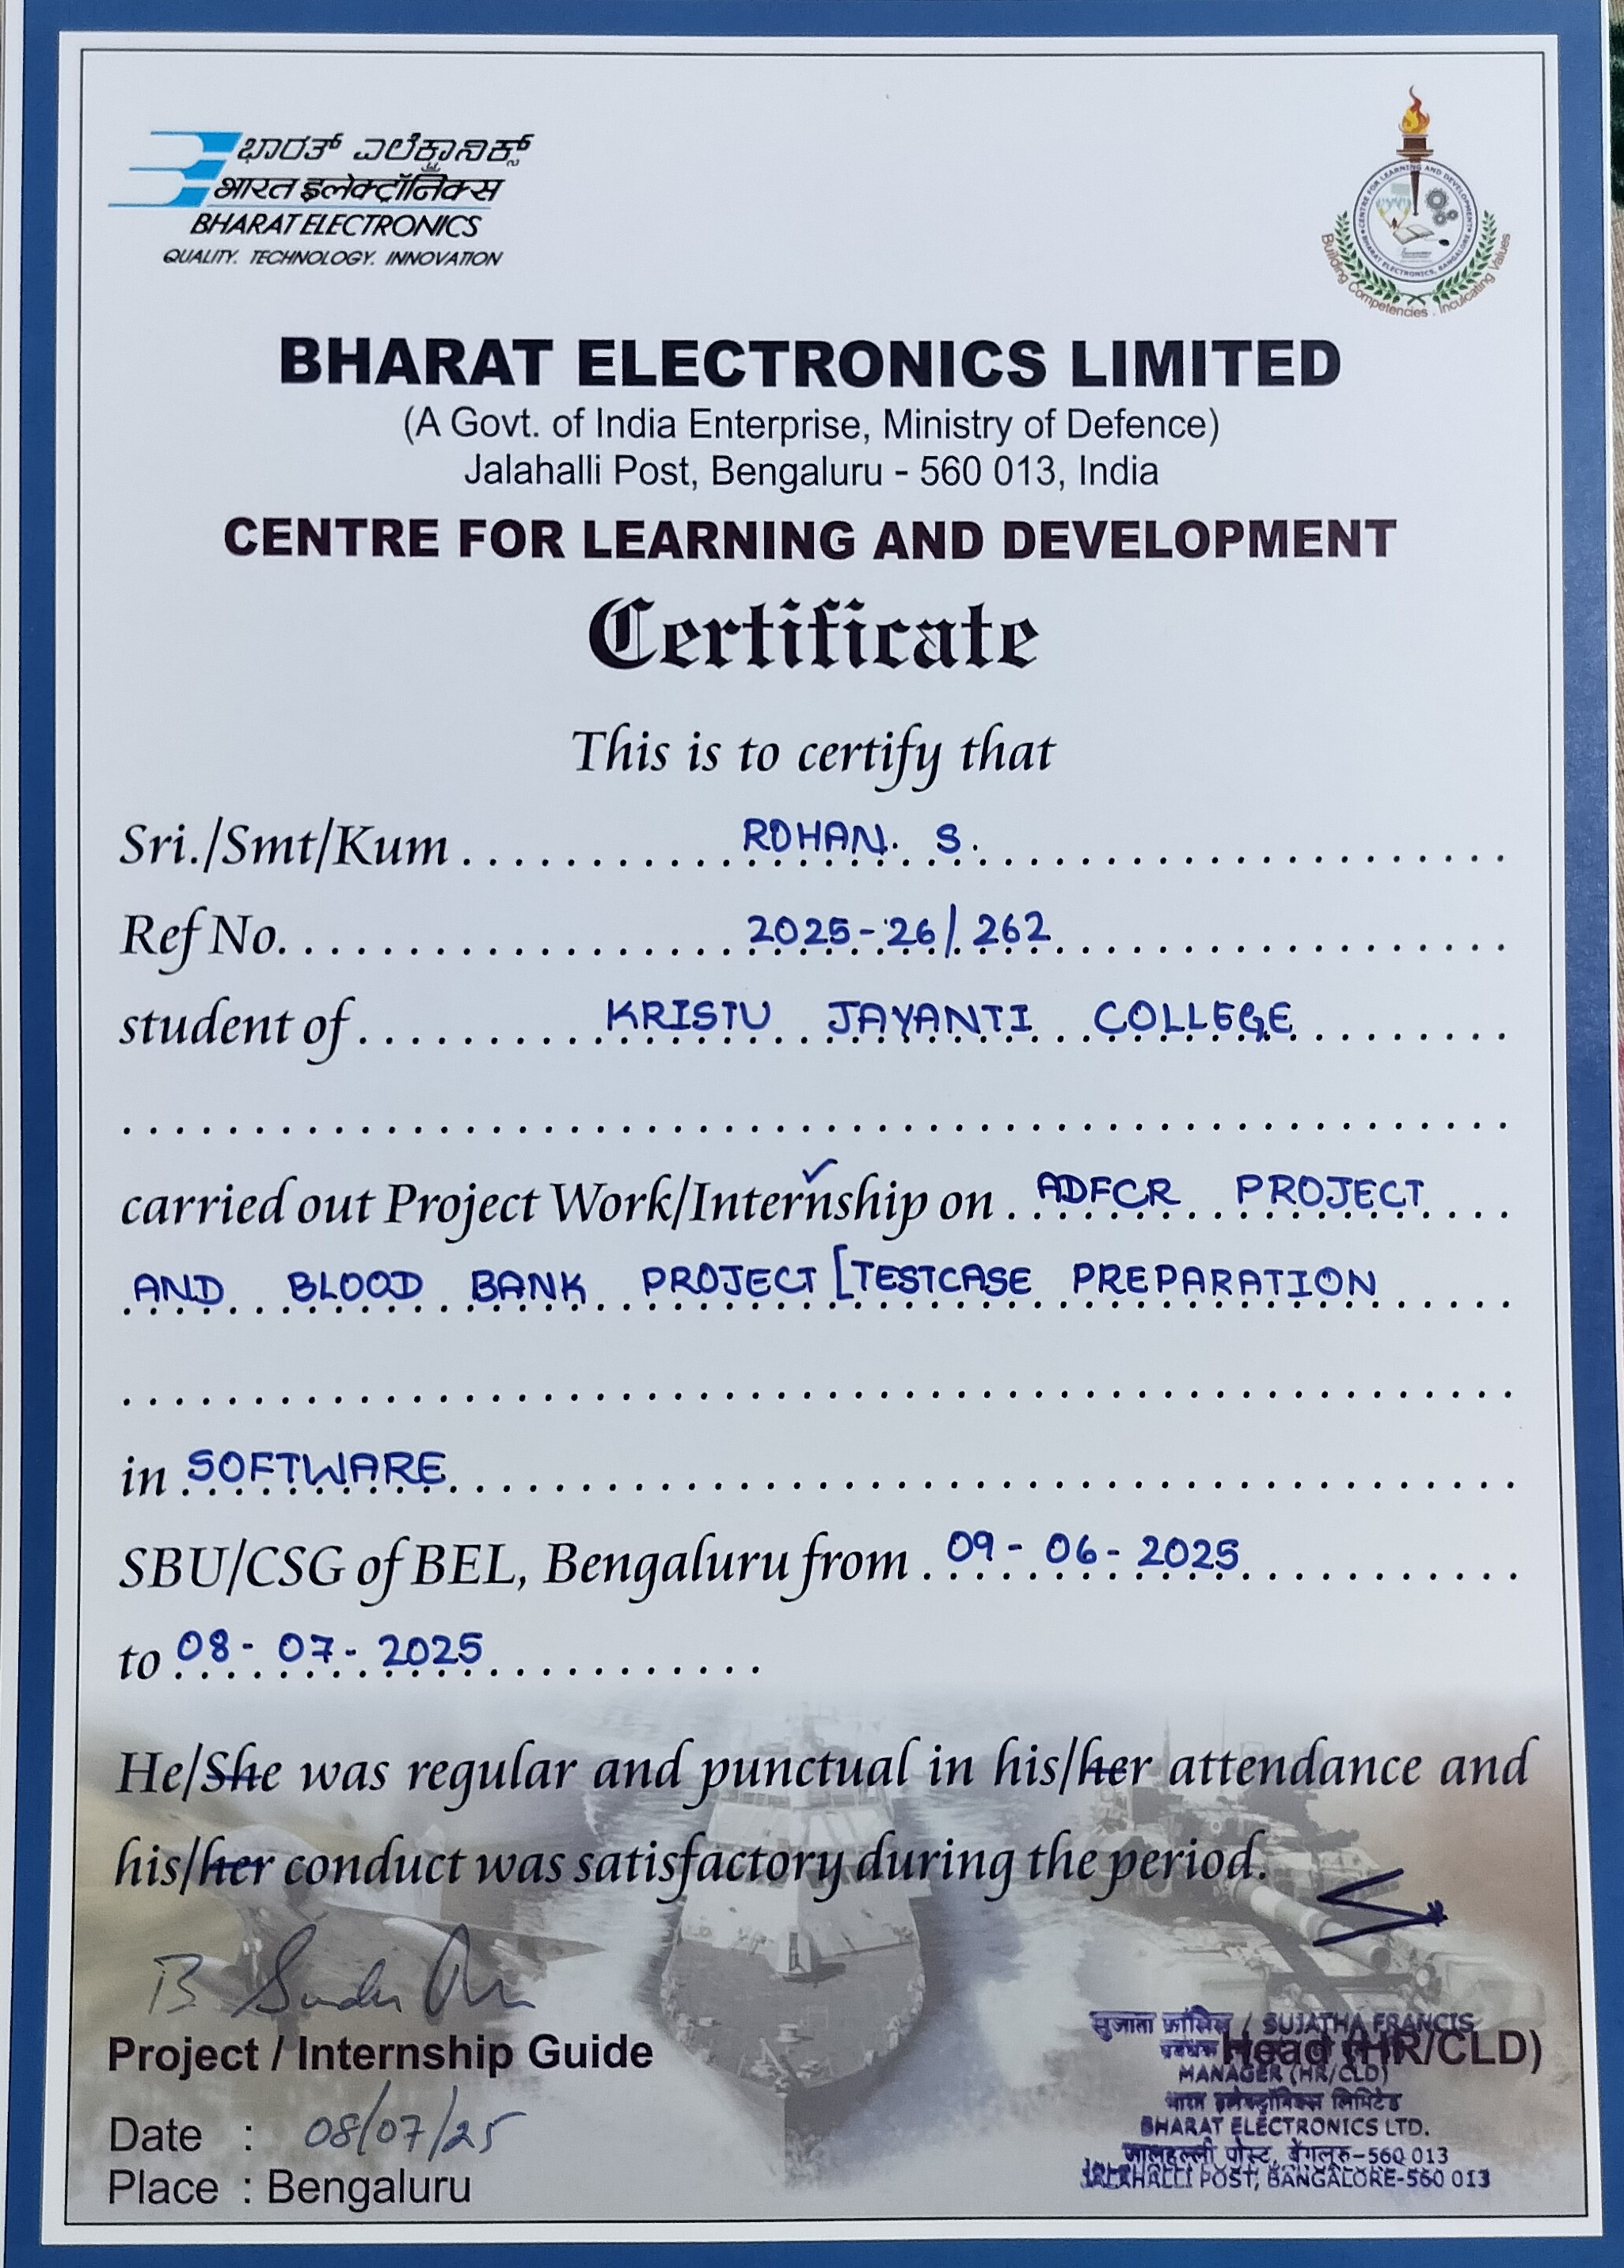 ಭಾರತ್ ಎಲೆಕ್ಟ್ರಾನಿಕ್ಸ್
भारत इलेक्ट्रॉनिक्स
BHARAT ELECTRONICS
QUALITY. TECHNOLOGY. INNOVATION
CENTRE FOR LEARNING AND DEVELOPMENT
BHARAT ELECTRONICS, BANGALORE
Building Competencies . Inculcating Values
BHARAT ELECTRONICS LIMITED
(A Govt. of India Enterprise, Ministry of Defence)
Jalahalli Post, Bengaluru - 560 013, India
CENTRE FOR LEARNING AND DEVELOPMENT
Certificate
This is to certify that
Sri./Smt/Kum ROHAN. S.
Ref No. 2025-26/262
student of KRISTU JAYANTI COLLEGE
carried out Project Work/Internship on ADFCR PROJECT
AND BLOOD BANK PROJECT [TESTCASE PREPARATION
in SOFTWARE
SBU/CSG of BEL, Bengaluru from 09-06-2025
to 08-07-2025
He/She was regular and punctual in his/her attendance and
his/her conduct was satisfactory during the period.
Project / Internship Guide
Date : 08/07/25
Place : Bengaluru
Head (HR/CLD)
सुजाता फ्रांसिस / SUJATHA FRANCIS
प्रबंधक
MANAGER (HR/CLD)
भारत इलेक्ट्रॉनिक्स लिमिटेड
BHARAT ELECTRONICS LTD.
जालहल्ली पोस्ट, बेंगलूरु-560 013
JALAHALLI POST, BANGALORE-560 013